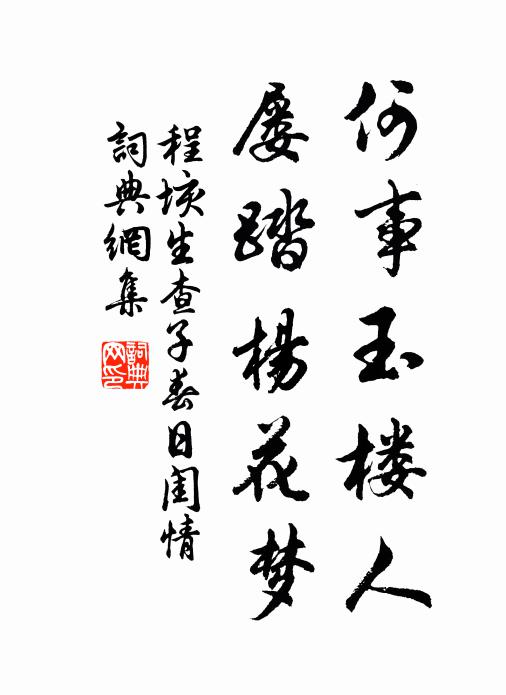 何事玉楼人
屡踏楊花梦
程垓生查子春日閨情
詞典網集
詞典网印